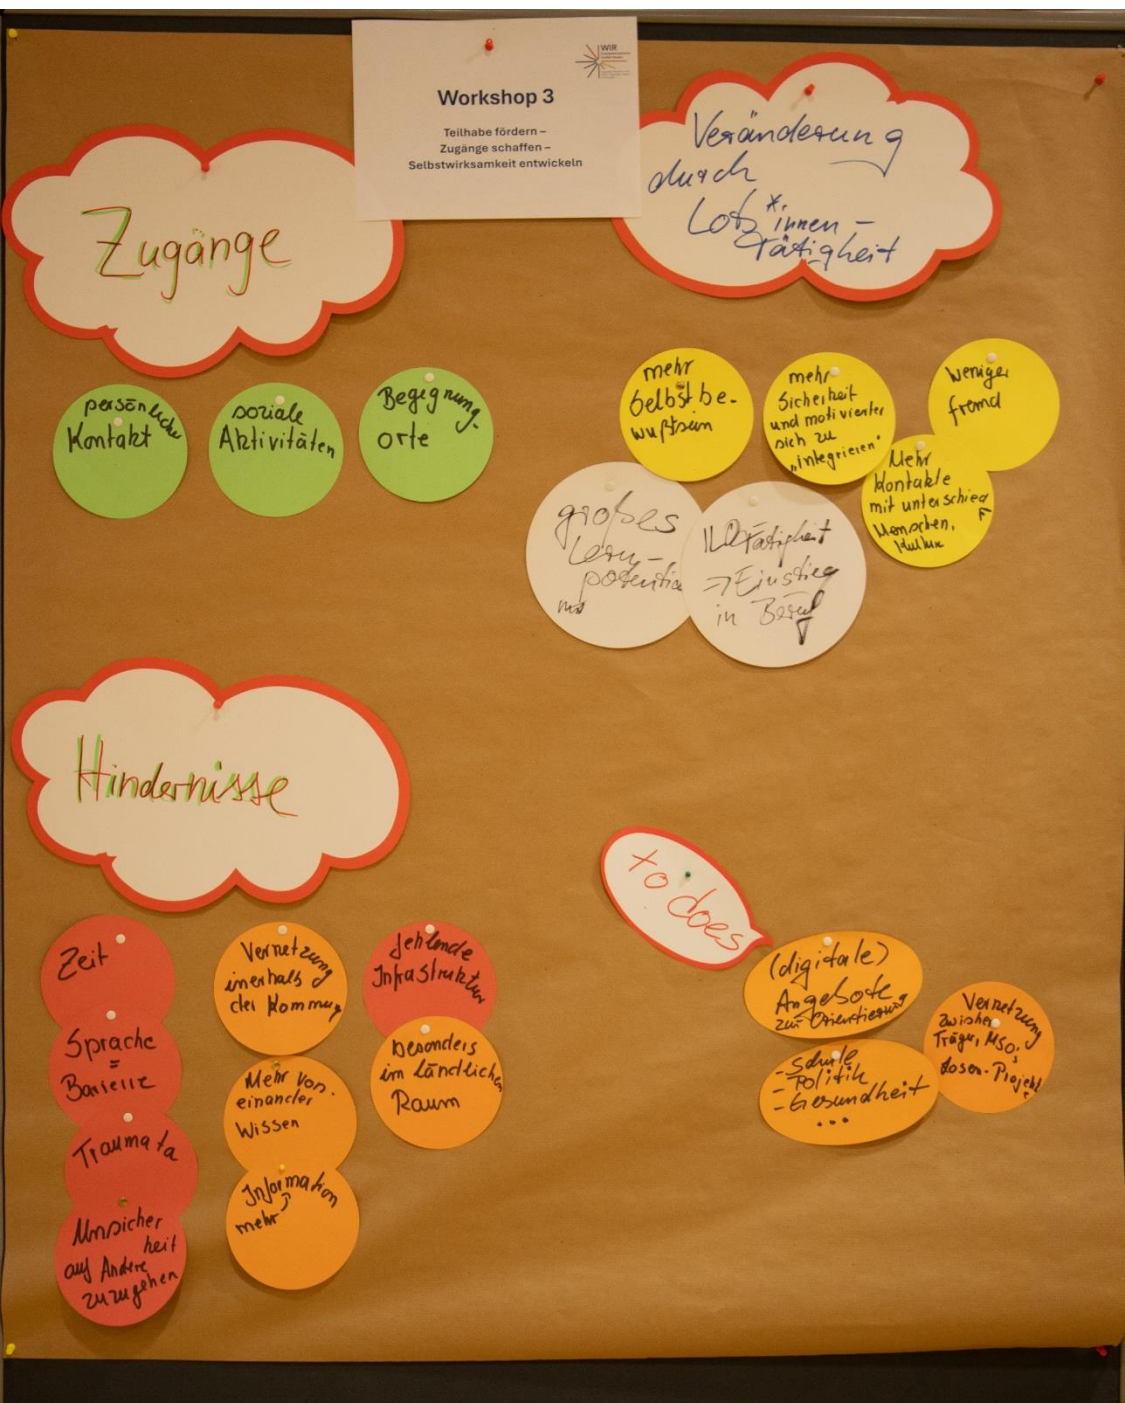 WIR
Workshop 3
Teilhabe fördern –
Zugänge schaffen –
Selbstwirksamkeit entwickeln
Zugänge
persönliche
Kontakt
soziale
Aktivitäten
Begegnung-
orte
Veränderung
durch
Lots*innen-
tätigkeit
mehr
Selbstbe-
wußtsein
mehr
Sicherheit
und motivierter
sich zu
„integrieren"
weniger
fremd
Mehr
Kontakte
mit unterschied
Menschen,
Kultur
großes
Lern-
potential
Tätigkeit
⇒ Einstieg
in Beruf
Hindernisse
Zeit
Sprache
=
Barierre
Traumata
Unsicher
heit
auf Andere
zuzugehen
Vernetzung
innerhalb
der Kommung
Mehr von-
einander
Wissen
Information
mehr
fehlende
Infrastruktur
besonders
im ländlichen
Raum
to does
(digitale)
Angebote
zur Orientierung
- Schule
- Politik
- Gesundheit
...
Vernetzung
zwischen
Träger, MSO,
Losen-Projekt